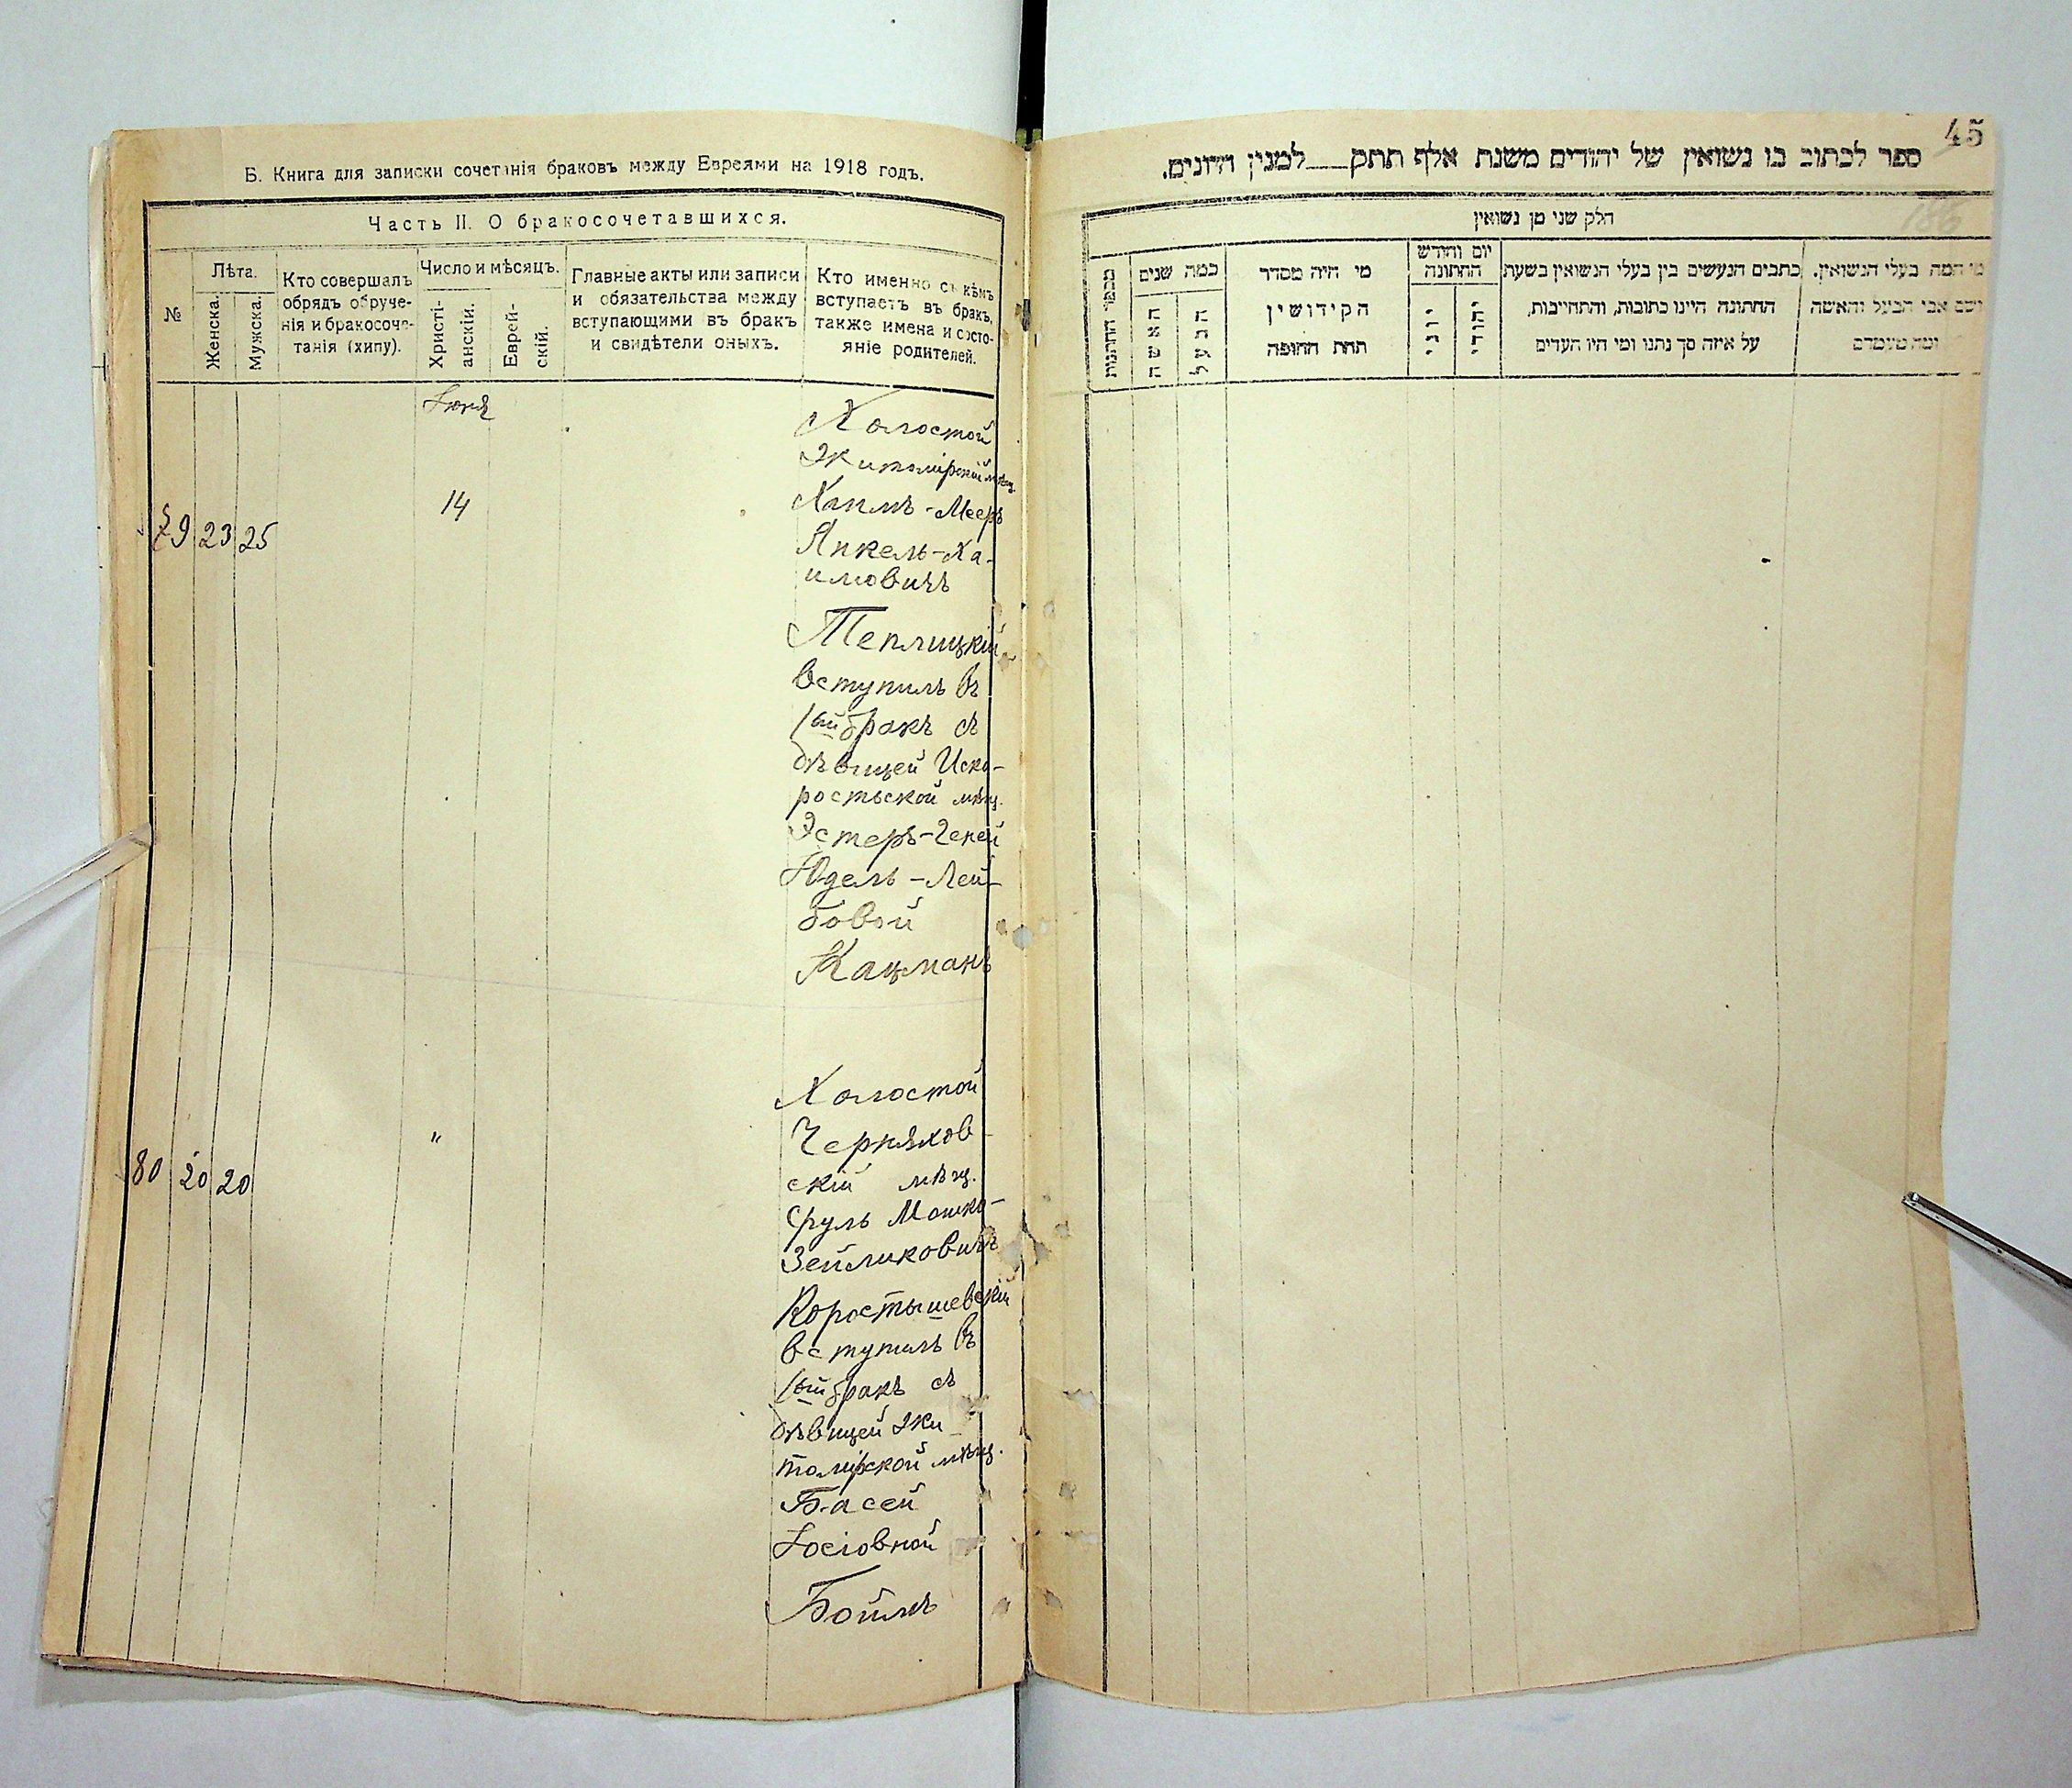 Б. Книга для записки сочетанія браковъ между Евреями на 1918 годъ.
Часть II. О бракосочетавшихся.
№
Лѣта.
Женска.
Мужска.
Кто совершалъ
обрядъ обруче-
нія и бракосоче-
танія (хипу).
Число и мѣсяцъ.
Христі-
анскій.
Еврей-
скій.
Главные акты или записи
и обязательства между
вступающими въ бракъ
и свидѣтели оныхъ.
Кто именно съ кѣмъ
вступаетъ въ бракъ,
также имена и состо-
яніе родителей.
79 23 25
14
Холостой
Житомірскій мѣщ.
Хаимъ-Мееръ
Янкель-Ха-
имовичъ
Теплицкій
вступилъ въ
1ый бракъ съ
дѣвицей Иско-
ростьской мѣщ.
Эстеръ-
Юдель-Лей-
бовой
Кацманъ
80 20 20
"
Холостой
Черняхов-
скій мѣщ.
Сруль Мошко-
Зейликовичъ
Коростышевскій
вступилъ въ
1ый бракъ съ
дѣвицей Жи
томірской мѣщ.
Басей
Іосіовной
Боймъ
45
ספר לכתוב בו נשואין של יהודים משנת אלף תתק___למנין היונים.
חלק שני מן נשואין
מספר החתונות
כמה שנים
האשה
הבעל
מי היה מסדר
הקידושין
תחת החופה
יום וחודש
החתונה
יוני
יהודי
כתבים הנעשים בין בעלי הנשואין בשעת
החתונה היינו כתובות, והתחייבות,
על איזה סך נתנו ומי היו העדים
מי המה בעלי הנשואין,
ושם אבי הבעל והאשה